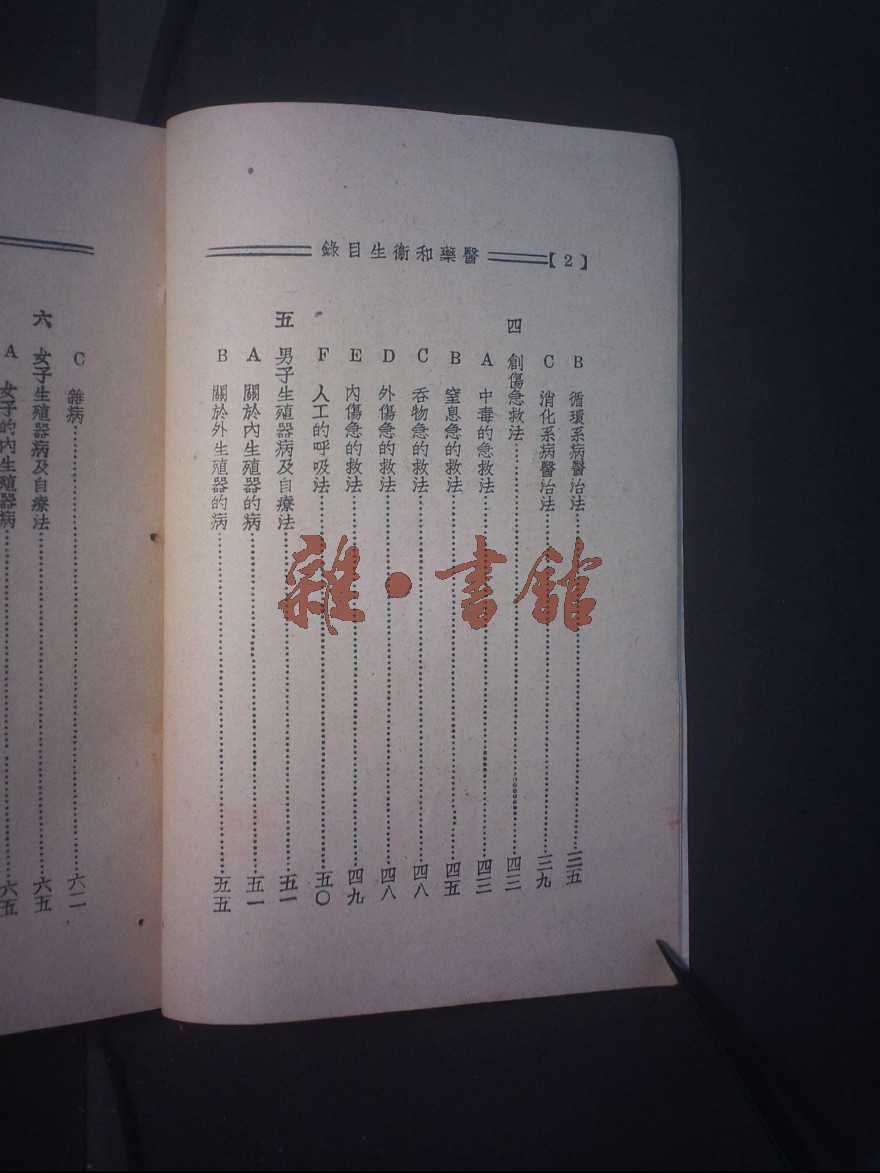 【2】醫藥和衞生目錄
B 循環系病醫治法……三五
C 消化系病醫治法……三九
四 創傷急救法……四三
A 中毒的急救法……四三
B 窒息急的救法……四五
C 吞物急的救法……四八
D 外傷急的救法……四八
E 內傷急的救法……四九
F 人工的呼吸法……五〇
五 男子生殖器病及自療法……五一
A 關於內生殖器的病……五一
B 關於外生殖器的病……五五
C 雜病……六二
六 女子生殖器病及自療法……六五
A 女子的內生殖器病……六五
雜·書館